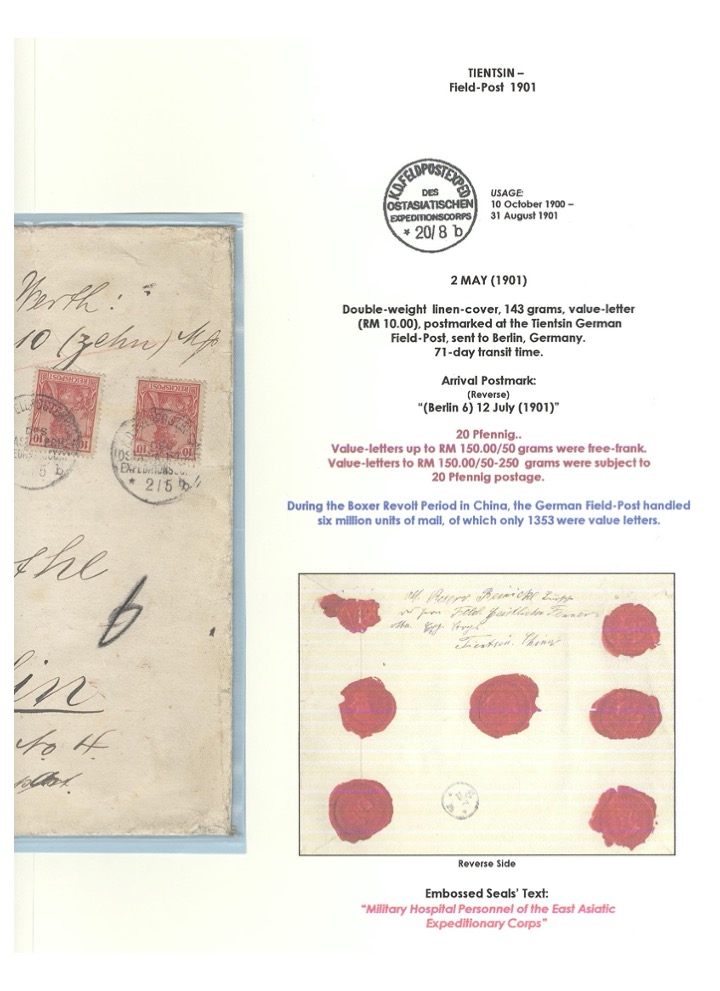 TIENTSIN –
Field-Post 1901
K.D.FELDPOSTEXPED
DES
OSTASIATISCHEN
EXPEDITIONSCORPS
* 20/8 b
USAGE:
10 October 1900 –
31 August 1901
2 MAY (1901)
Double-weight linen-cover, 143 grams, value-letter
(RM 10.00), postmarked at the Tientsin German
Field-Post, sent to Berlin, Germany.
71-day transit time.
Arrival Postmark:
(Reverse)
"(Berlin 6) 12 July (1901)"
20 Pfennig..
Value-letters up to RM 150.00/50 grams were free-frank.
Value-letters to RM 150.00/50-250 grams were subject to
20 Pfennig postage.
During the Boxer Revolt Period in China, the German Field-Post handled
six million units of mail, of which only 1353 were value letters.
Werth:
10 (zehn) Mk
REICHSPOST
10 10
REICHSPOST
10 10
DES
5 b
DES
* 2/5 b
6
lin
No 4.
Reinicke
Tientsin. China
Reverse Side
Embossed Seals' Text:
"Military Hospital Personnel of the East Asiatic
Expeditionary Corps"